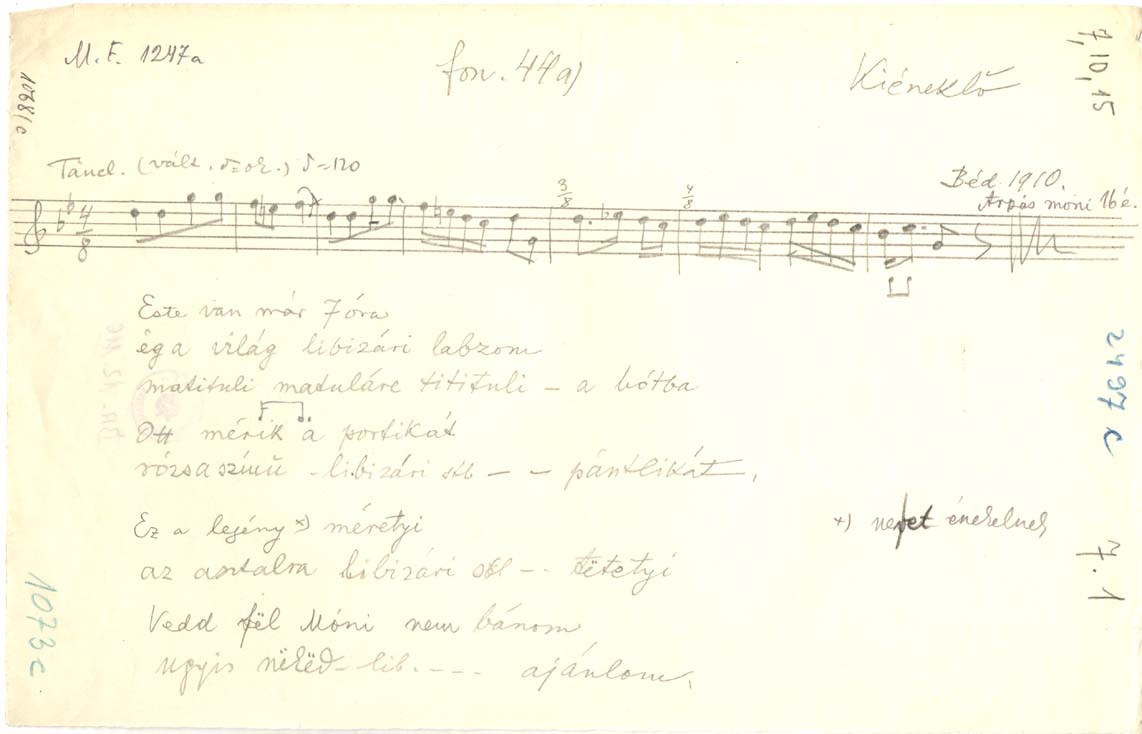 M. F. 1247a
fon. 44a)
Kiéneklő
7,10,15
1078/c
Táncl. (vált. =120
Béd. 1910.
Árpás móni 16 é.
4/8
3/8
4/8
Este van már 7 óra
ég a világ libizári labzom
matituli matuláre titituli – a bótba
Ott mérik a portikát
rózsaszínű – libizári stb – – pántlikát,
Ez a legény x) méretyi
x) nevet énekelnek
az asztalra libizári stb – – tëtetyi
Vedd fël Móni nem bánom
ugyis nëkëd – lib. – – – – ajánlom.
2497 c
7.1
1073c